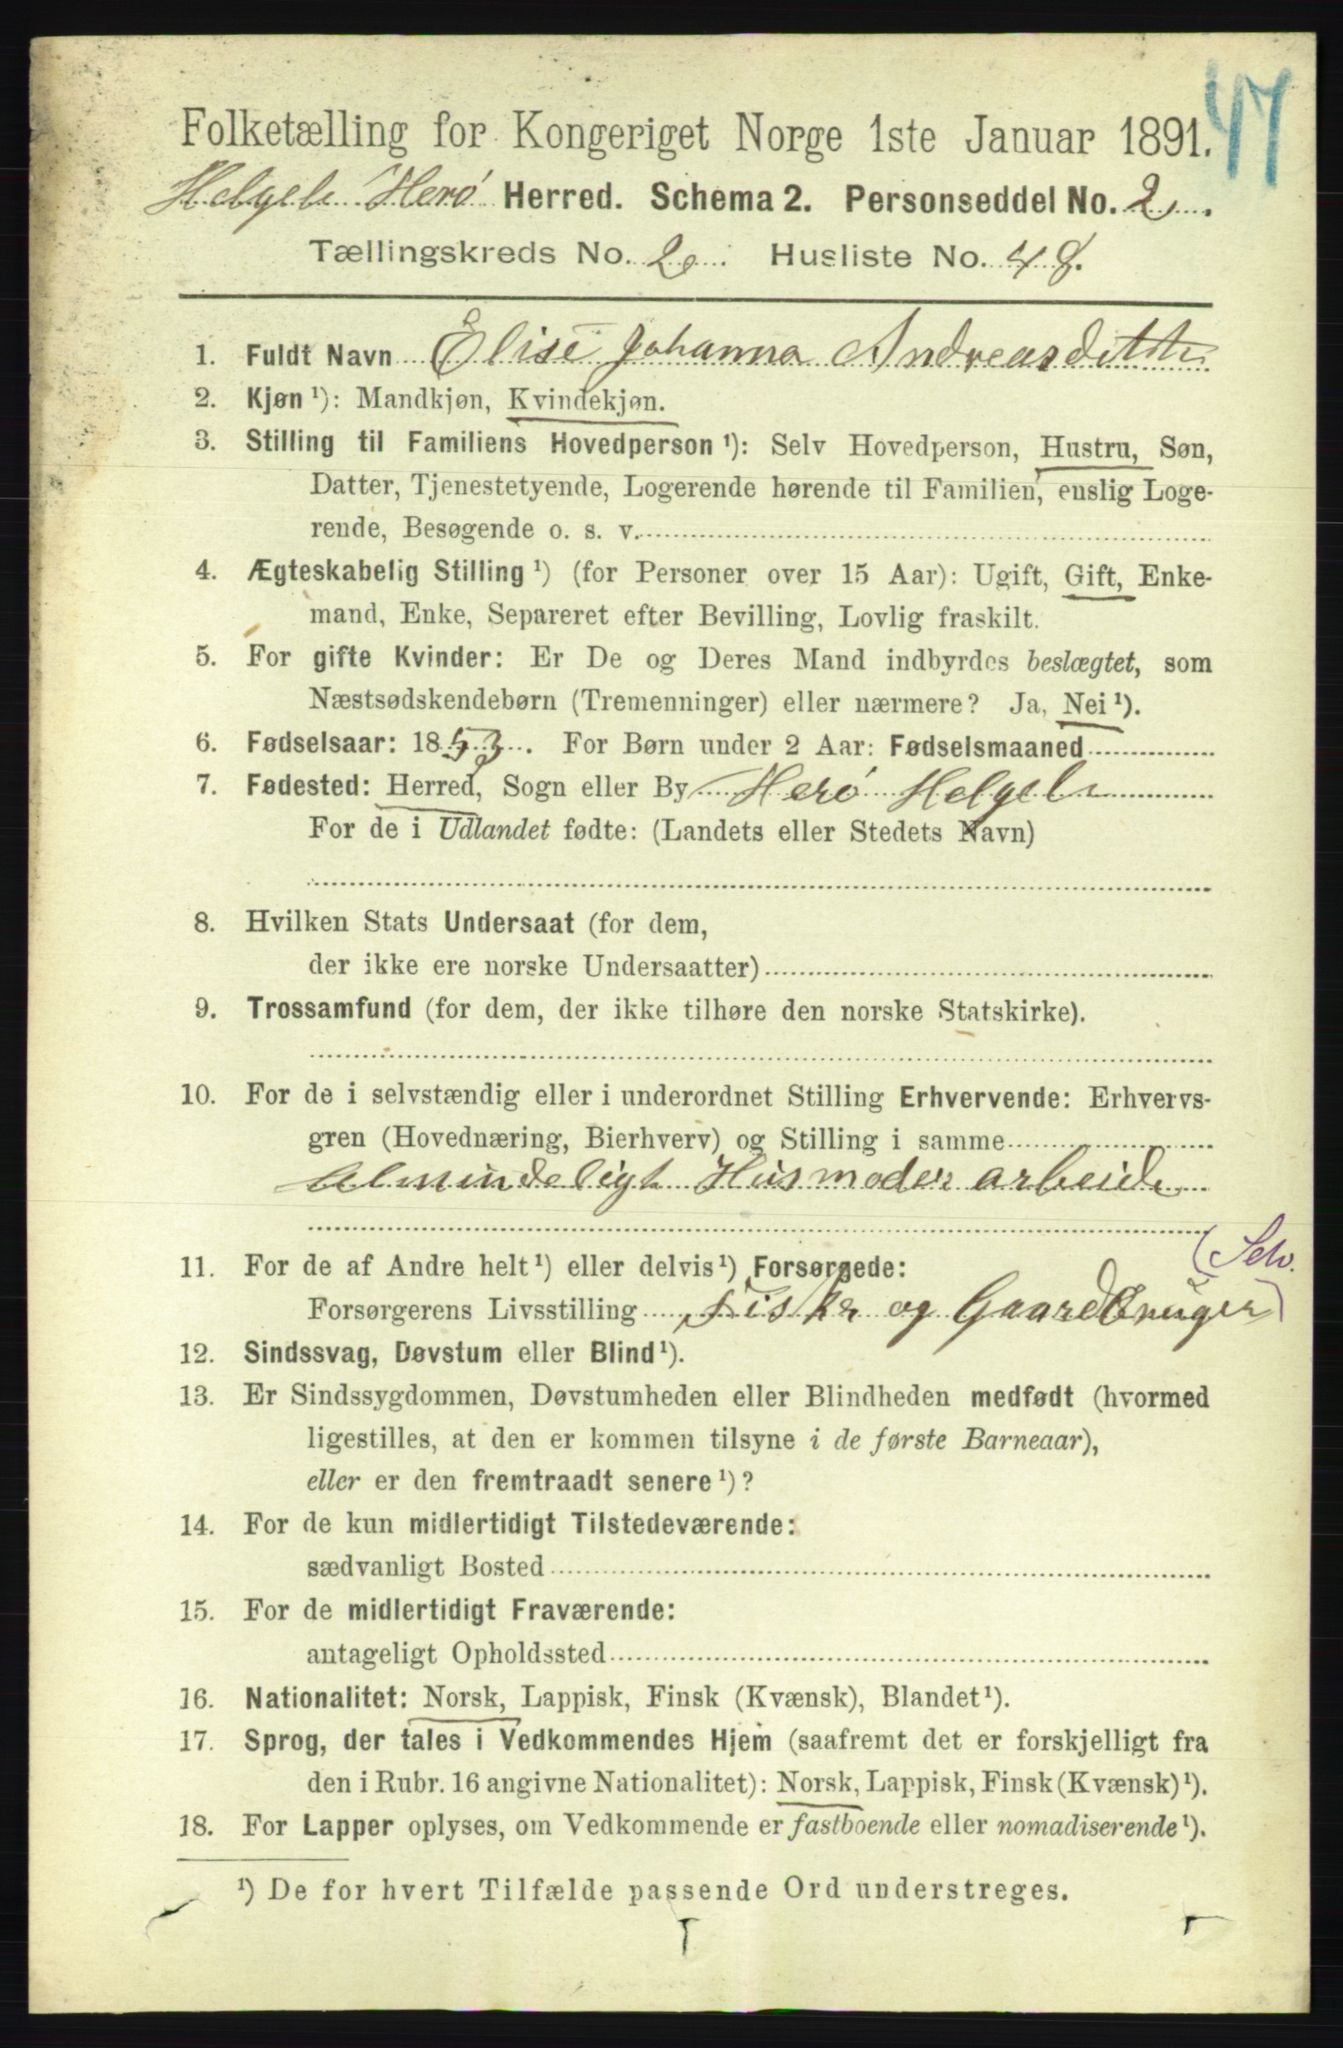 47
Folketælling for Kongeriget Norge 1ste Januar 1891.
Helgel. Herø Herred. Schema 2. Personseddel No. 2.
Tællingskreds No. 2. Husliste No. 48.
1. Fuldt Navn Elise Johanna Andreasdatter
2. Kjøn ¹): Mandkjøn, Kvindekjøn.
3. Stilling til Familiens Hovedperson ¹): Selv Hovedperson, Hustru, Søn,
Datter, Tjenestetyende, Logerende hørende til Familien, enslig Loge-
rende, Besøgende o. s. v.
4. Ægteskabelig Stilling ¹) (for Personer over 15 Aar): Ugift, Gift, Enke-
mand, Enke, Separeret efter Bevilling, Lovlig fraskilt.
5. For gifte Kvinder: Er De og Deres Mand indbyrdes beslægtet, som
Næstsødskendebørn (Tremenninger) eller nærmere? Ja, Nei ¹).
6. Fødselsaar: 1853. For Børn under 2 Aar: Fødselsmaaned
7. Fødested: Herred, Sogn eller By Herø Helgel.
For de i Udlandet fødte: (Landets eller Stedets Navn)
8. Hvilken Stats Undersaat (for dem,
der ikke ere norske Undersaatter)
9. Trossamfund (for dem, der ikke tilhøre den norske Statskirke).
10. For de i selvstændig eller i underordnet Stilling Erhvervende: Erhvervs-
gren (Hovednæring, Bierhverv) og Stilling i samme
Almindeligt Husmoder arbeide
11. For de af Andre helt ¹) eller delvis ¹) Forsørgede:
(Selv.
Forsørgerens Livsstilling Fisker og Gaardbruger)
12. Sindssvag, Døvstum eller Blind ¹).
13. Er Sindssygdommen, Døvstumheden eller Blindheden medfødt (hvormed
ligestilles, at den er kommen tilsyne i de første Barneaar),
eller er den fremtraadt senere ¹)?
14. For de kun midlertidigt Tilstedeværende:
sædvanligt Bosted
15. For de midlertidigt Fraværende:
antageligt Opholdssted
16. Nationalitet: Norsk, Lappisk, Finsk (Kvænsk), Blandet ¹).
17. Sprog, der tales i Vedkommendes Hjem (saafremt det er forskjelligt fra
den i Rubr. 16 angivne Nationalitet): Norsk, Lappisk, Finsk (Kvænsk) ¹).
18. For Lapper oplyses, om Vedkommende er fastboende eller nomadiserende ¹).
¹) De for hvert Tilfælde passende Ord understreges.